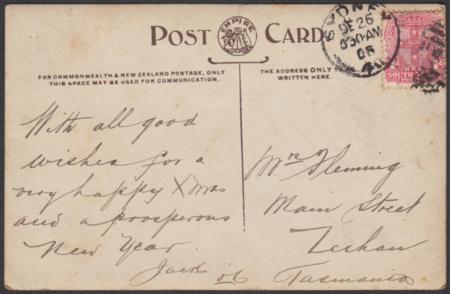 POST CARD
EMPIRE
SYDNEY
DE 26
6 30 AM
06
FOR COMMONWEALTH & NEW ZEALAND POSTAGE, ONLY
THIS SPACE MAY BE USED FOR COMMUNICATION.
THE ADDRESS ONLY
WRITTEN HERE.
SOUTH
With all good
wishes for a
very happy Xmas
and a prosperous
New Year.
Jack
Mrs Fleming
Main Street
Zeehan
Tasmania